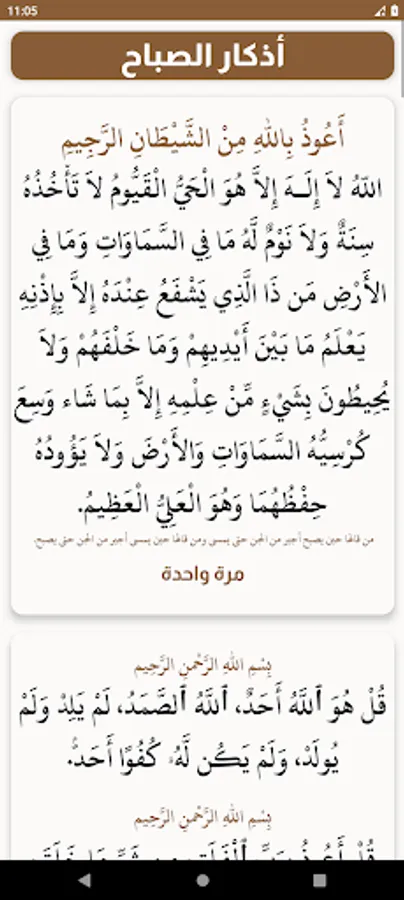 11:05
أذكار الصباح
أَعُوذُ بِاللهِ مِنْ الشَّيْطَانِ الرَّجِيمِ
اللّهُ لاَ إِلَـهَ إِلاَّ هُوَ الْحَيُّ الْقَيُّومُ لاَ تَأْخُذُهُ
سِنَةٌ وَلاَ نَوْمٌ لَّهُ مَا فِي السَّمَاوَاتِ وَمَا فِي
الأَرْضِ مَن ذَا الَّذِي يَشْفَعُ عِنْدَهُ إِلاَّ بِإِذْنِهِ
يَعْلَمُ مَا بَيْنَ أَيْدِيهِمْ وَمَا خَلْفَهُمْ وَلاَ
يُحِيطُونَ بِشَيْءٍ مِّنْ عِلْمِهِ إِلاَّ بِمَا شَاء وَسِعَ
كُرْسِيُّهُ السَّمَاوَاتِ وَالأَرْضَ وَلاَ يَؤُودُهُ
حِفْظُهُمَا وَهُوَ الْعَلِيُّ الْعَظِيمُ.
من قالها حين يصبح أجير من الجن حتى يمسى ومن قالها حين يمسى أجير من الجن حتى يصبح.
مرة واحدة
بِسْمِ اللهِ الرَّحْمنِ الرَّحِيم
قُلْ هُوَ ٱللَّهُ أَحَدٌ، ٱللَّهُ ٱلصَّمَدُ، لَمْ يَلِدْ وَلَمْ
يُولَدْ، وَلَمْ يَكُن لَّهُۥ كُفُوًا أَحَدٌۢ.
بِسْمِ اللهِ الرَّحْمنِ الرَّحِيم
قُلْ أَعُوذُ بِرَبِّ ٱلْفَلَقِ، مِن شَرِّ مَا خَلَقَ،